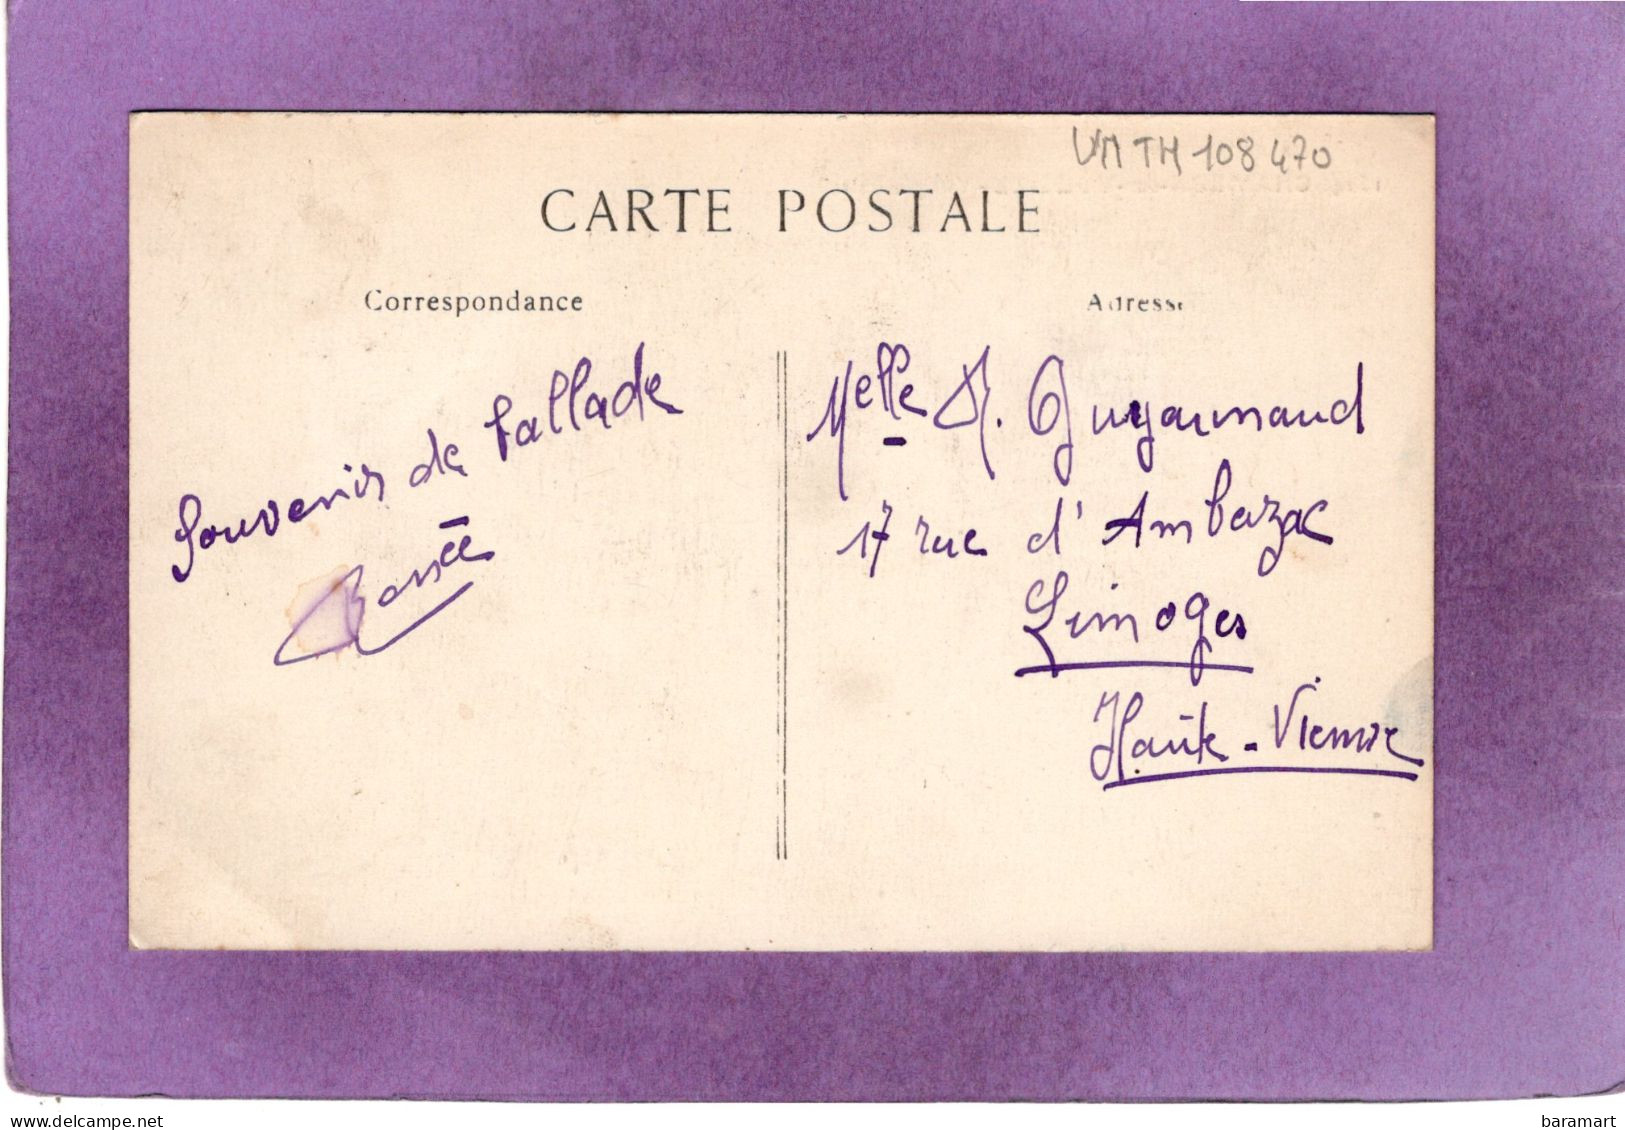 VM TM 108 470
CARTE POSTALE
Correspondance
Adresse
Souvenir de ballade
Melle R. Guyonnaud
17 rue d'Ambazac
Limoges
Haute-Vienne
https://www.delcampe.net
baramart